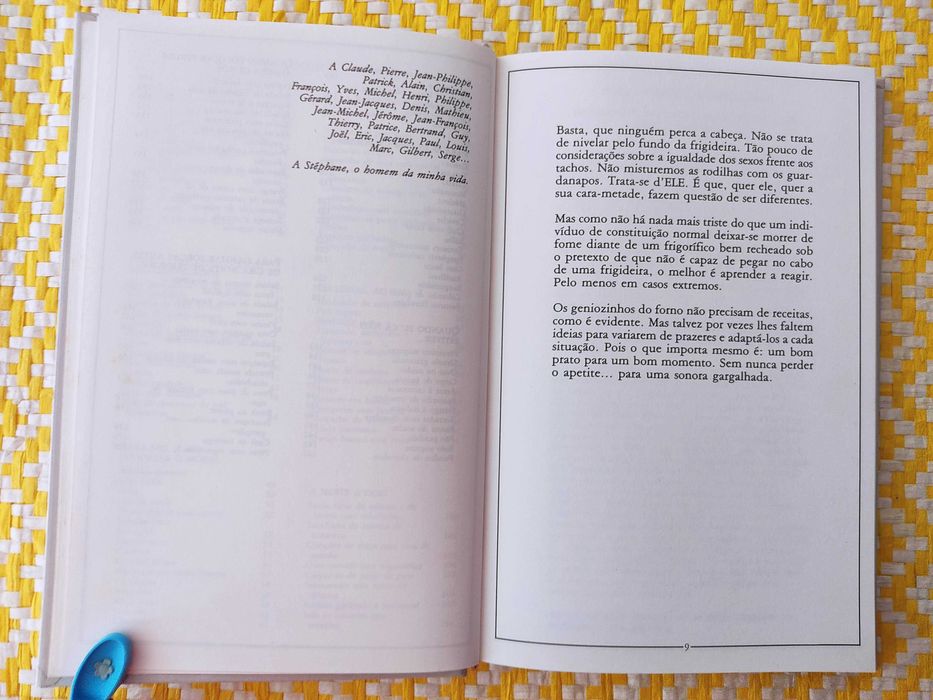 A Claude, Pierre, Jean-Philippe,
Patrick, Alain, Christian,
François, Yves, Michel, Henri, Philippe,
Gérard, Jean-Jacques, Denis, Mathieu,
Jean-Michel, Jérôme, Jean-François,
Thierry, Patrice, Bertrand, Guy,
Joël, Eric, Jacques, Paul, Louis,
Marc, Gilbert, Serge...
A Stéphane, o homem da minha vida.
Basta, que ninguém perca a cabeça. Não se trata
de nivelar pelo fundo da frigideira. Tão pouco de
considerações sobre a igualdade dos sexos frente aos
tachos. Não misturemos as rodilhas com os guar-
danapos. Trata-se d'ELE. É que, quer ele, quer a
sua cara-metade, fazem questão de ser diferentes.
Mas como não há nada mais triste do que um indi-
víduo de constituição normal deixar-se morrer de
fome diante de um frigorífico bem recheado sob
o pretexto de que não é capaz de pegar no cabo
de uma frigideira, o melhor é aprender a reagir.
Pelo menos em casos extremos.
Os geniozinhos do forno não precisam de receitas,
como é evidente. Mas talvez por vezes lhes faltem
ideias para variarem de prazeres e adaptá-los a cada
situação. Pois o que importa mesmo é: um bom
prato para um bom momento. Sem nunca perder
o apetite... para uma sonora gargalhada.
9